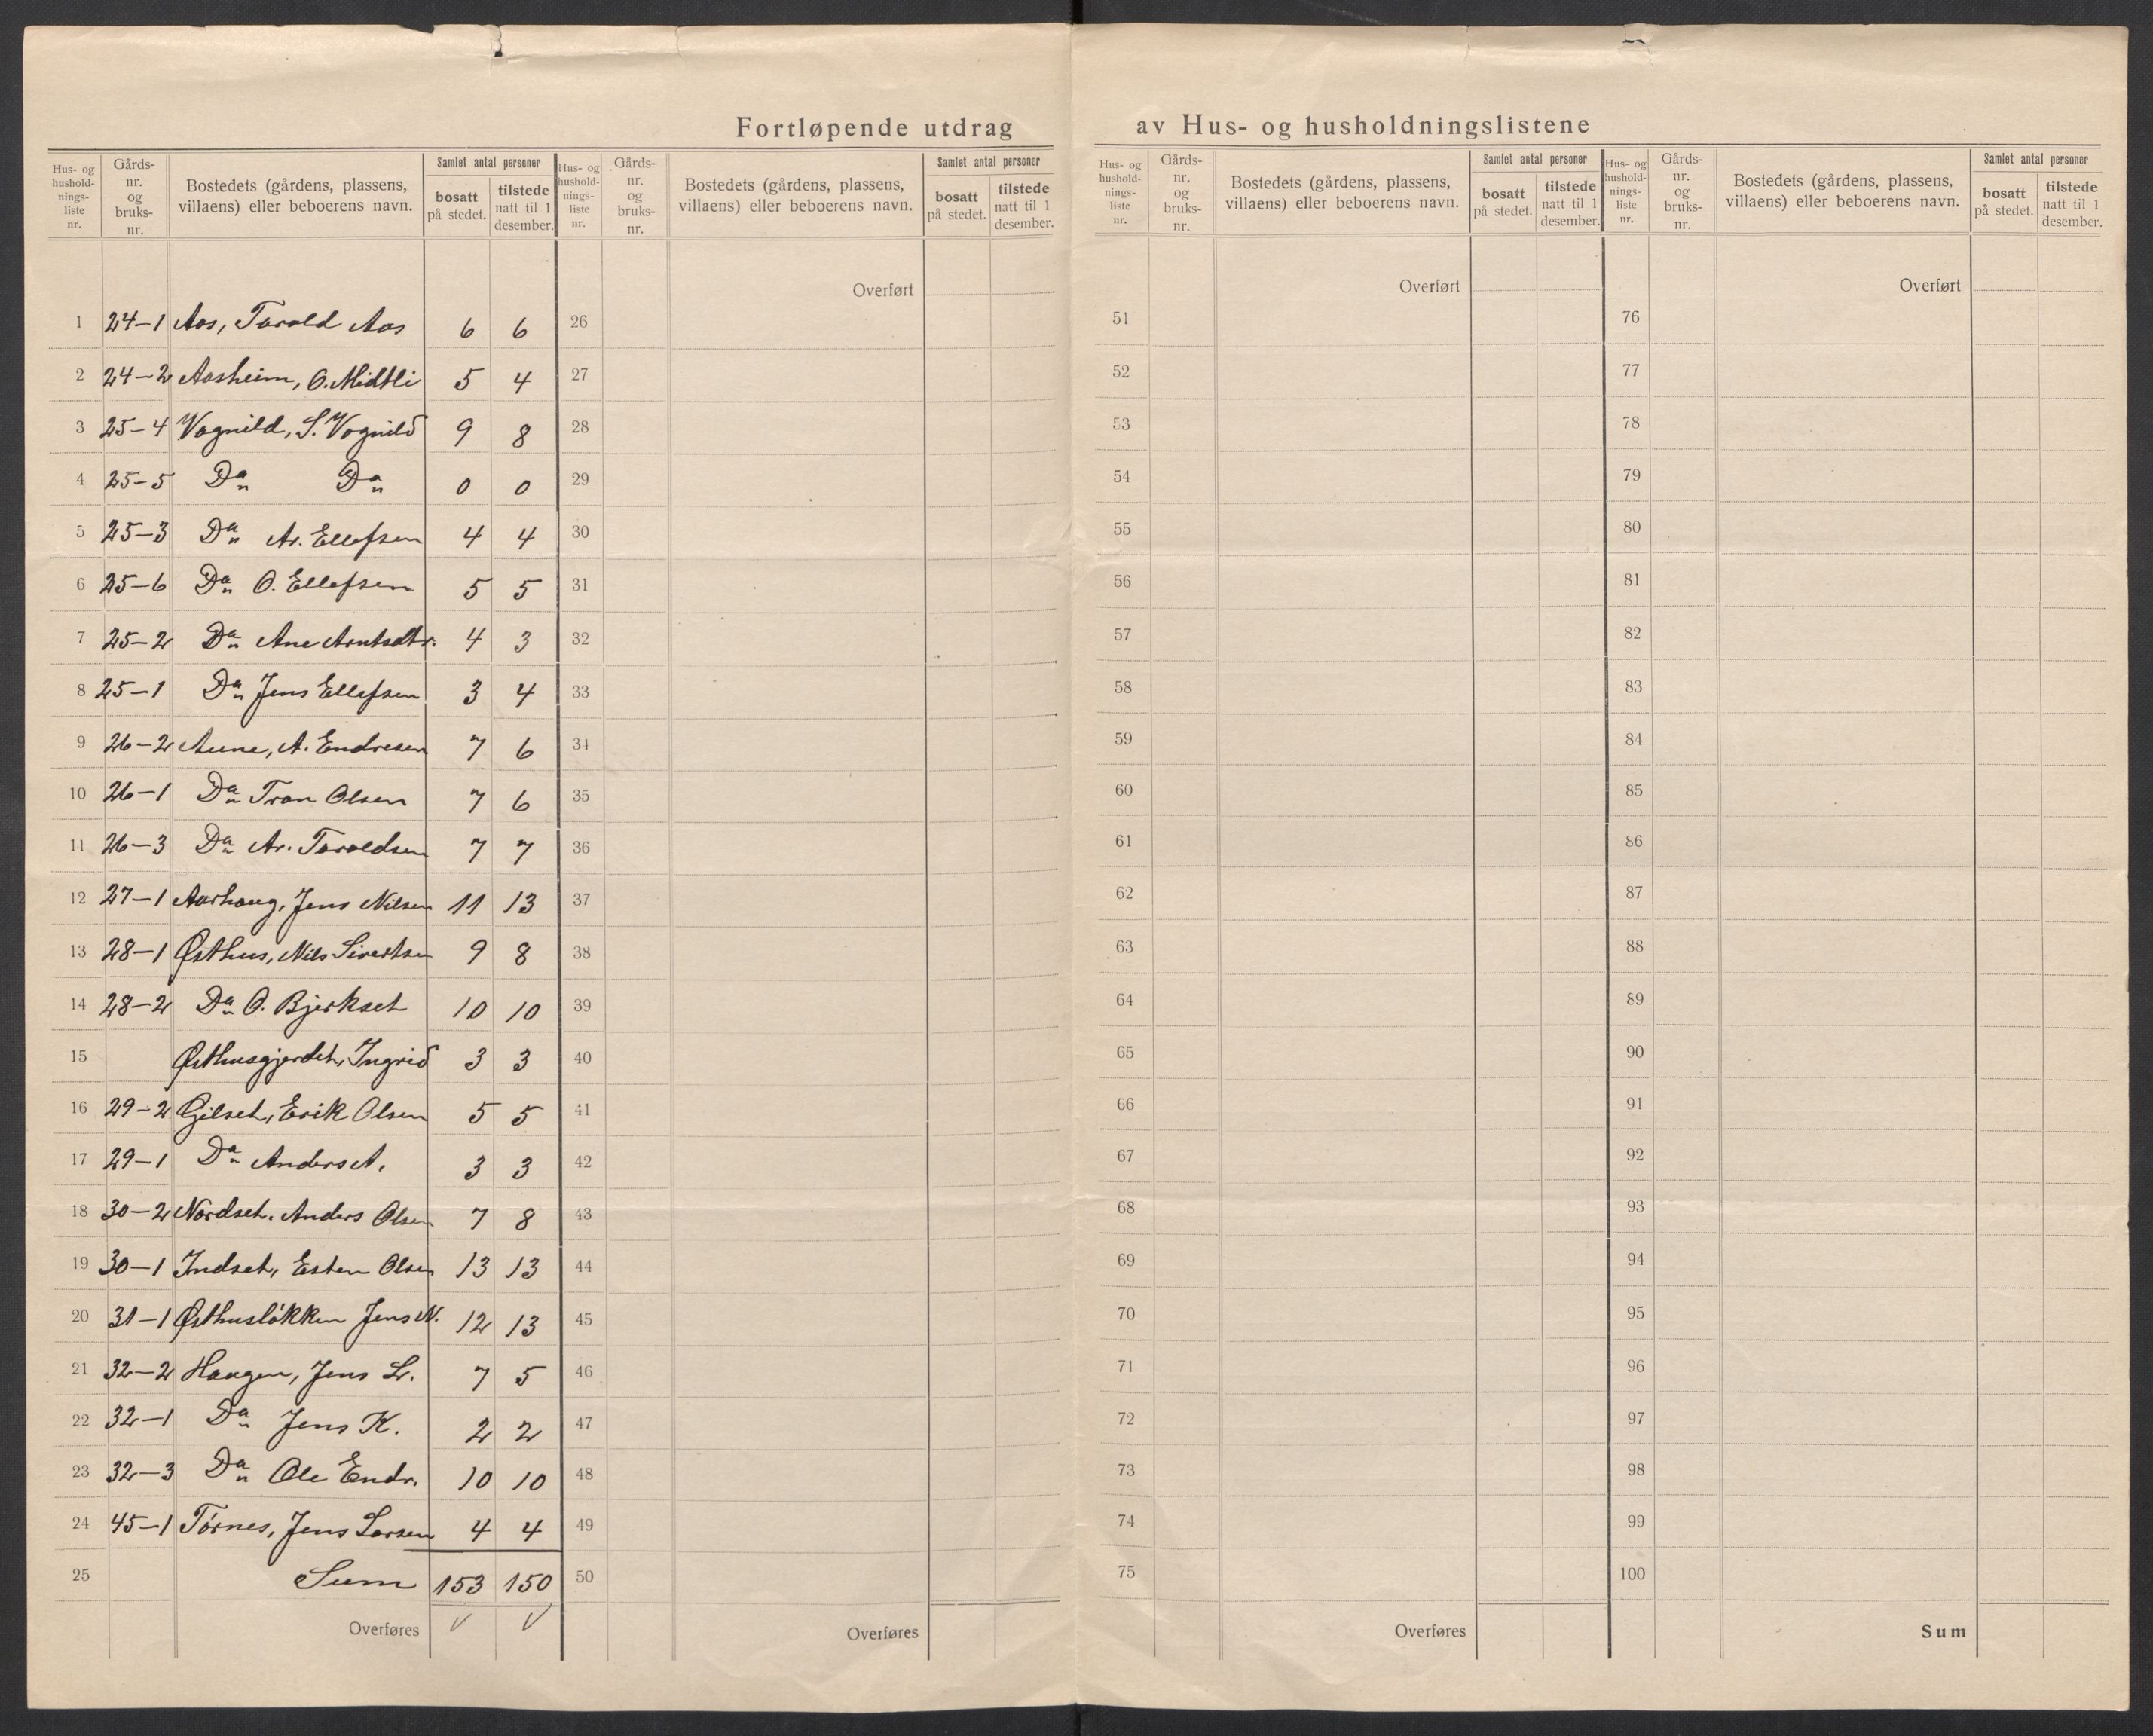 Fortløpende utdrag av Hus- og husholdningslistene
Hus- og hushold-nings-liste nr. Gårds-nr. og bruks-nr. Bostedets (gårdens, plassens, villaens) eller beboerens navn. Samlet antal personer bosatt på stedet. tilstede natt til 1 desember.
Hus- og hushold-nings-liste nr. Gårds-nr. og bruks-nr. Bostedets (gårdens, plassens, villaens) eller beboerens navn. Samlet antal personer bosatt på stedet. tilstede natt til 1 desember.
Hus- og hushold-nings-liste nr. Gårds-nr. og bruks-nr. Bostedets (gårdens, plassens, villaens) eller beboerens navn. Samlet antal personer bosatt på stedet. tilstede natt til 1 desember.
Hus- og hushold-nings-liste nr. Gårds-nr. og bruks-nr. Bostedets (gårdens, plassens, villaens) eller beboerens navn. Samlet antal personer bosatt på stedet. tilstede natt til 1 desember.
Overført Overført Overført
1 24-1 Aas, Tarald Aas 6 6 26 51 76
2 24-2 Aasheim, O. Midtli 5 4 27 52 77
3 25-4 Vognild, S. Vognild 9 8 28 53 78
4 25-5 Do Do 0 0 29 54 79
5 25-3 Do Ar. Ellefsen 4 4 30 55 80
6 25-6 Do O. Ellefsen 5 5 31 56 81
7 25-2 Do Ane Arntsdtr. 4 3 32 57 82
8 25-1 Do Jens Ellefsen 3 4 33 58 83
9 26-2 Aune, A. Endresen 7 6 34 59 84
10 26-1 Do Tron Olsen 7 6 35 60 85
11 26-3 Do Ar. Taraldsen 7 7 36 61 86
12 27-1 Aarhaug, Jens Nilsen 11 13 37 62 87
13 28-1 Østhus, Nils Sivertsen 9 8 38 63 88
14 28-2 Do O. Bjerkset 10 10 39 64 89
15 Østhusgjerdet, Ingrid 3 3 40 65 90
16 29-2 Gilset, Erik Olsen 5 5 41 66 91
17 29-1 Do Anders A. 3 3 42 67 92
18 30-2 Nordset, Anders Olsen 7 8 43 68 93
19 30-1 Indset, Esten Olsen 13 13 44 69 94
20 31-1 Østhusløkken Jens N. 12 13 45 70 95
21 32-2 Haugen, Jens L. 7 5 46 71 96
22 32-1 Do Jens K. 2 2 47 72 97
23 32-3 Do Ole Endr. 10 10 48 73 98
24 45-1 Tørnes, Jens Larsen 4 4 49 74 99
25 Sum 153 150 50 75 100
Overføres Overføres Overføres Sum